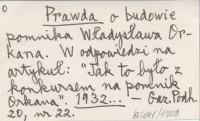 Prawda o budowie
pomnika Władysława Or-
kana. W odpowiedzi na
artykuł: "Jak to było z
konkursem na pomnik
Orkana". 1932... — Gaz. Podh.
20, nr 22.